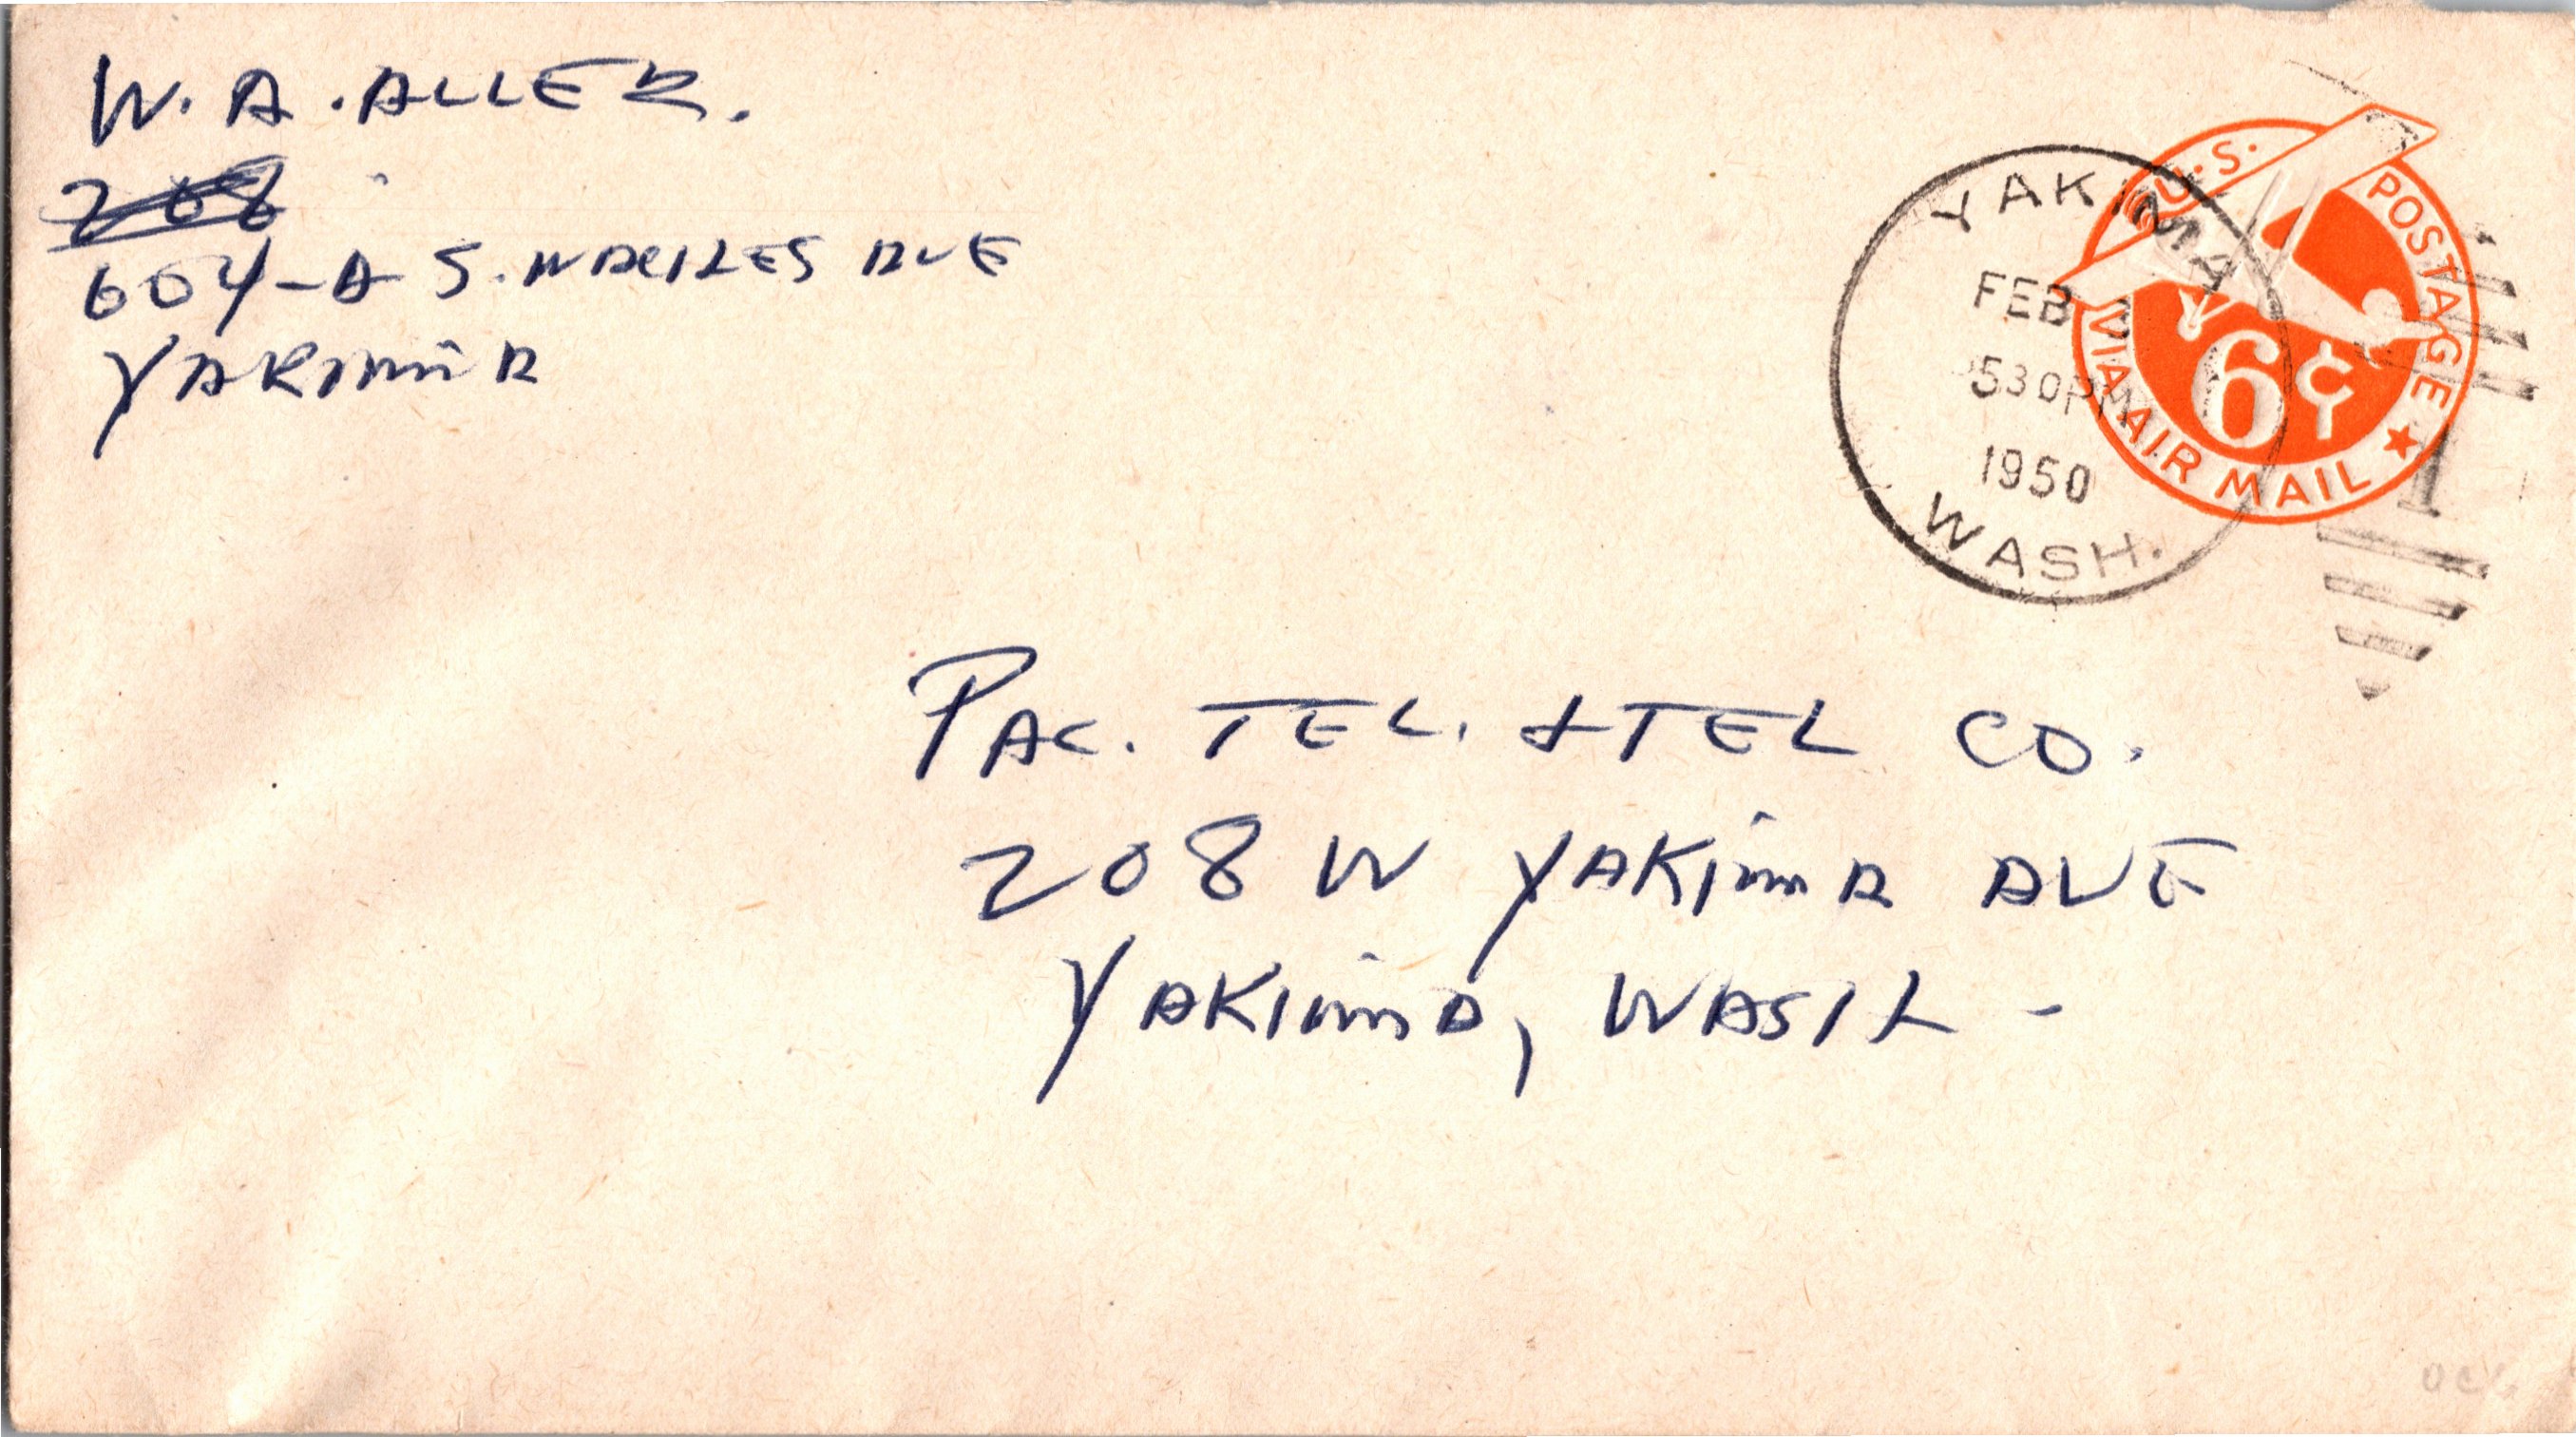 W. A. ALLER.
208
604-A S. NACHES AVE
YAKIMA
U.S. POSTAGE
VIA AIR MAIL
6¢
YAKIMA
FEB
530 PM
1950
WASH.
1
PAC. TEL. & TEL CO.
208 W YAKIMA AVE
YAKIMA, WASH -